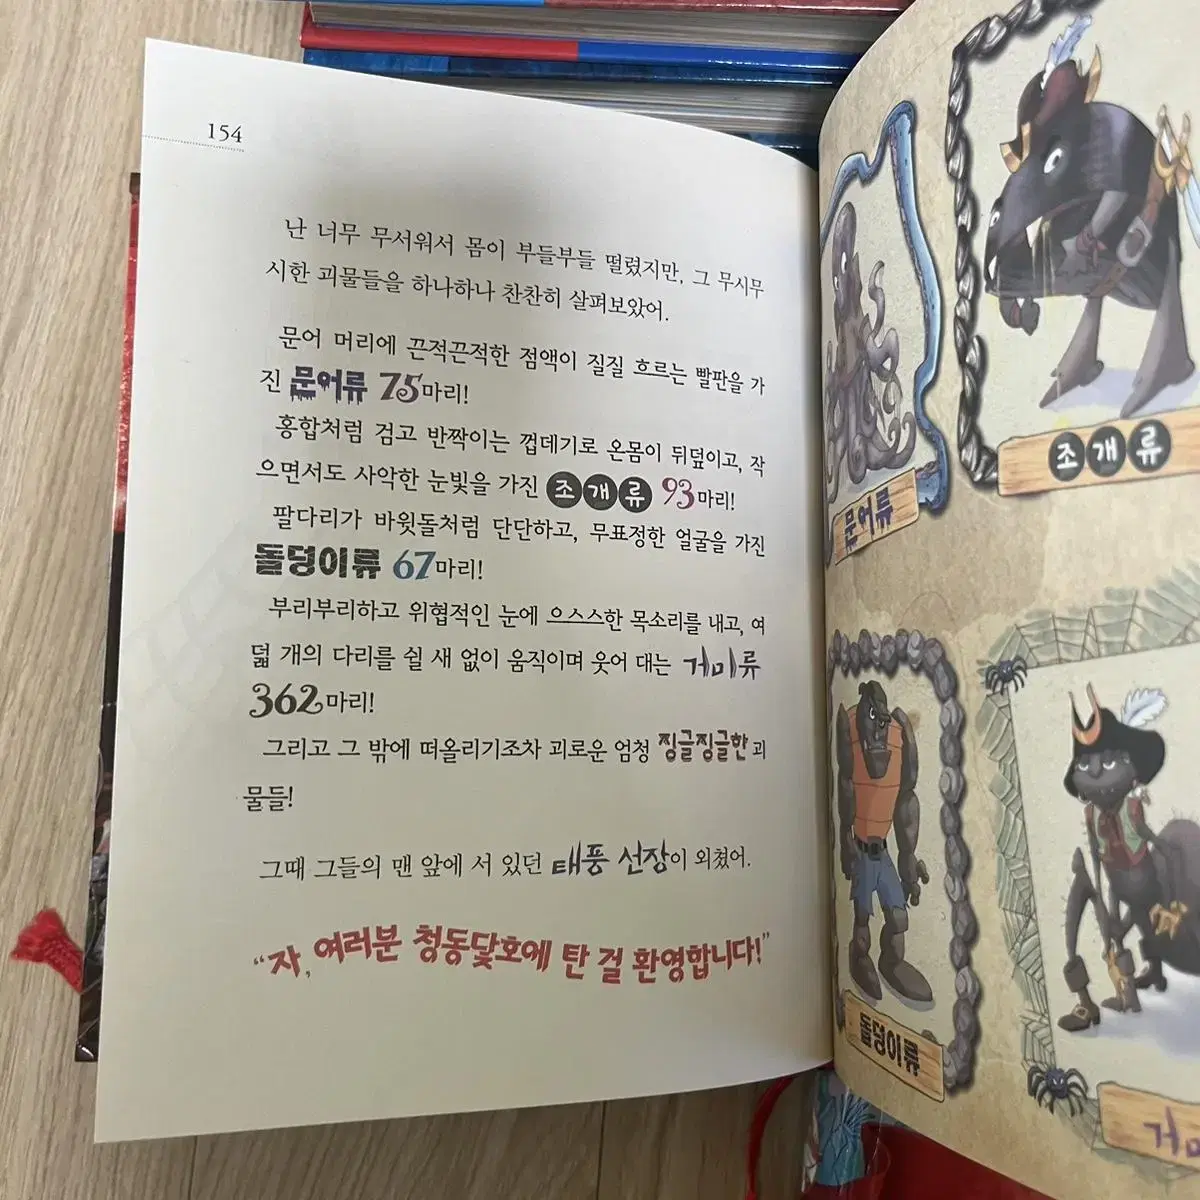 154
난 너무 무서워서 몸이 부들부들 떨렸지만, 그 무시무
시한 괴물들을 하나하나 찬찬히 살펴보았어.
문어 머리에 끈적끈적한 점액이 질질 흐르는 빨판을 가
진 문어류 75마리!
홍합처럼 검고 반짝이는 껍데기로 온몸이 뒤덮이고, 작
으면서도 사악한 눈빛을 가진 조개류 93마리!
팔다리가 바윗돌처럼 단단하고, 무표정한 얼굴을 가진
돌덩이류 67마리!
부리부리하고 위협적인 눈에 으스스한 목소리를 내고, 여
덟 개의 다리를 쉴 새 없이 움직이며 웃어 대는 거미류
362마리!
그리고 그 밖에 떠올리기조차 괴로운 엄청 징글징글한 괴
물들!
그때 그들의 맨 앞에 서 있던 태풍 선장이 외쳤어.
“자, 여러분 청동닻호에 탄 걸 환영합니다!”
문어류
조개류
돌덩이류